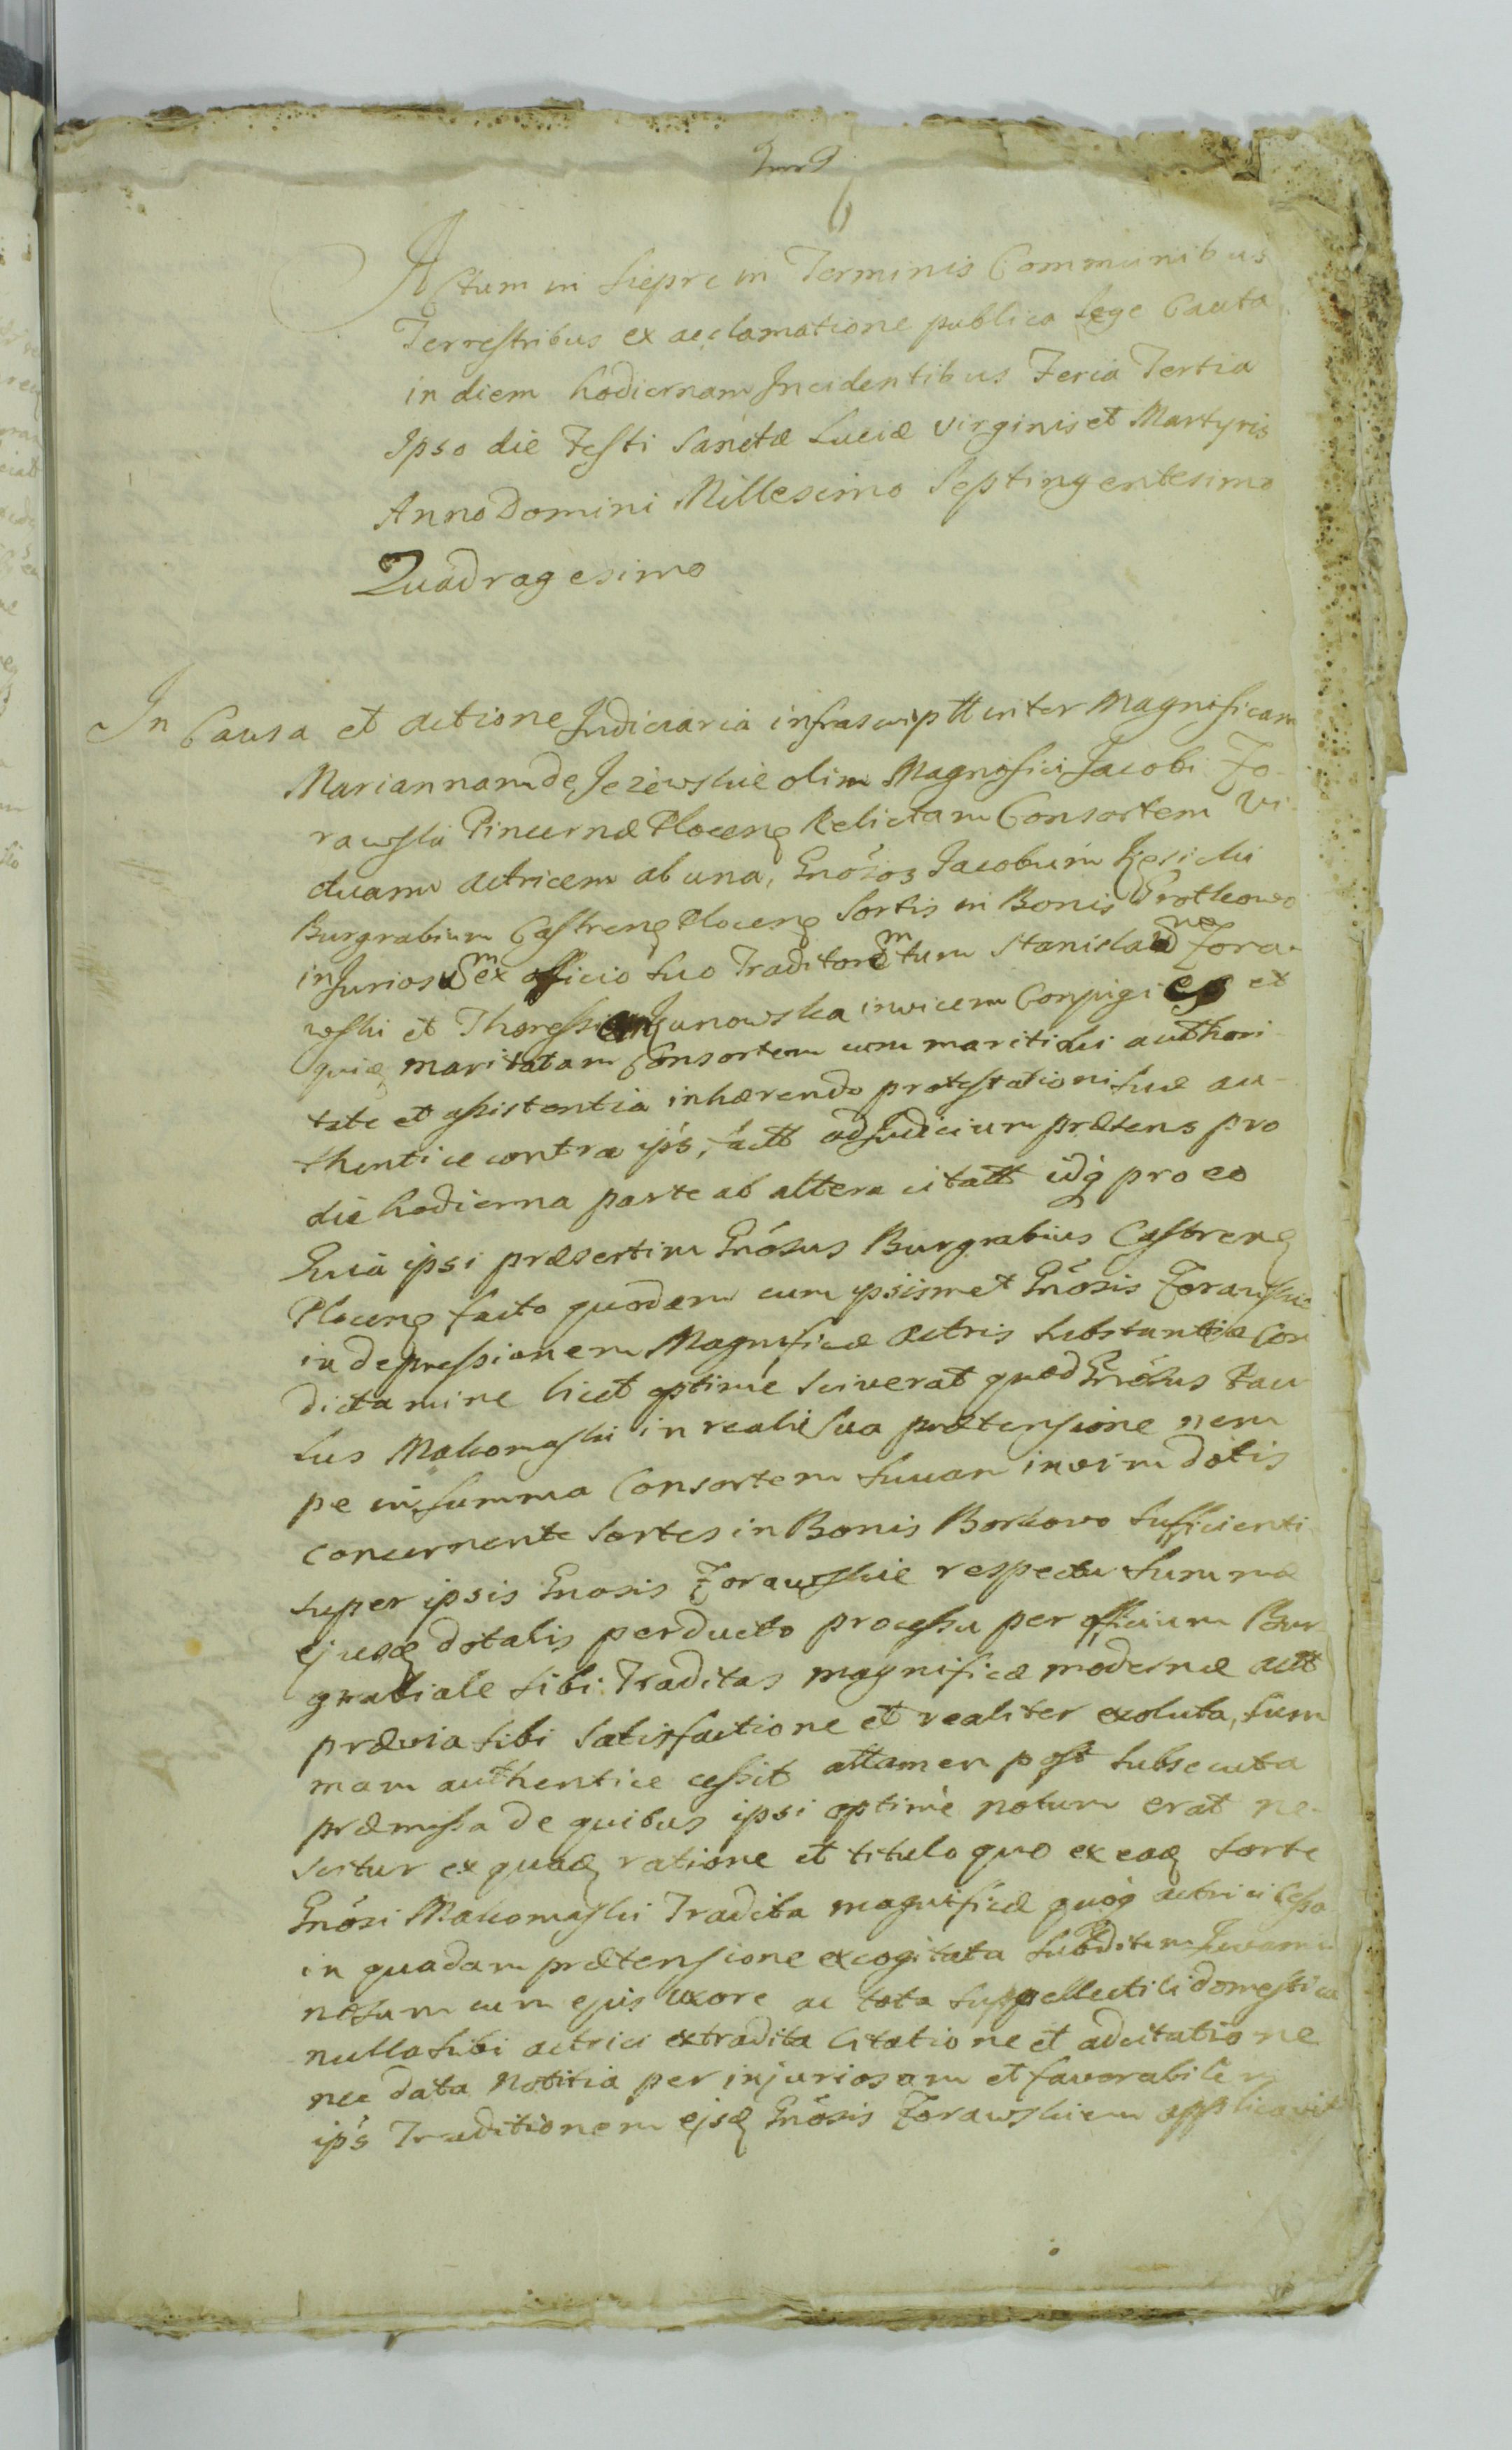 Actum in Siepre in Terminis Communibus
Terrestribus ex acclamatione publica Lege Cauta
in diem hodiernam Incidentibus Feria Tertia
Ipso die Festi Sanctæ Luciæ Virginis et Martyris
Anno Domini Millesimo Septingentesimo
Quadragesimo
In Causa et actione Judiciaria infrascriptt inter Magnificam
Mariannam de Jezewskie olim Magnifici Jacobi Zo-
rawski Pincernæ Plocens Relictam Consortem Vi-
duam actricem ab una, Gnosos Jacobum
Burgrabium Castrens Plocens Sortis in Bonis
injuriosum ex officio suo Traditorem tum Stanislaum Zora-
wski et invicem Conjuges et
quidem maritatam Consortem cum maritali authori
tate et assistentia inhærendo protestationi suæ au-
thentice contra ips, factt ad Judicium præsens pro
die hodierna parte ab altera citatt idq pro eo
Quia ipsi præsertim Gnosus Burgrabius Castrens
Plocens facto quodam cum ipsismet Gnosis Zorawskie
in depressionem Magnificæ Actris substantiæ Con
dictamine licet optime sciverat quod Gnosus Pau
lus Makomaski in reali sua prætensione nem
pe in summa Consortem suam in vim dotis
concernente Sortes in Bonis Borkowo sufficienti
super ipsis Gnosis Zorawskie respectu summæ
ejusd dotalis perducto processu per officium Bur
grabiale sibi Traditas magnificæ modernæ actt
prævia sibi satisfactione et realiter exoluta, sum
mam authentice cessit attamen post subsecuta
præmissa de quibus ipsi optime notum erat ne-
scitur ex quad ratione et titulo quo ex ead Sorte
Gnosi Makomaski Tradita magnificæ quoq actrici Cessa
in quadam prætensione excogitata subditum
cum ejus uxore ac tota suppellectili domestica
nulla sibi actrici extradita Citatione et adcitatione
nec data notitia per injuriosam et favorabilem
ips Traditionem ejsd Gnosis Zorawskiem applicavit